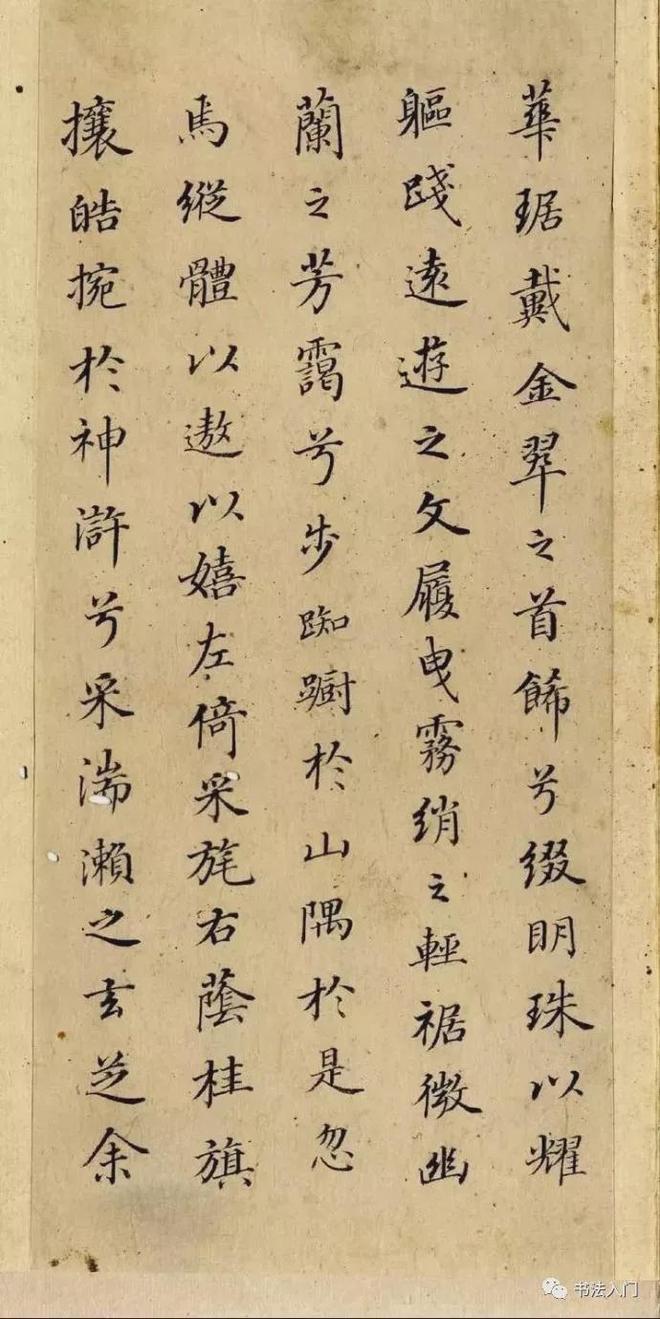 華琚戴金翠之首餙兮綴明珠以耀
軀踐遠遊之文履曳霧綃之輕裾微幽
蘭之芳靄兮步踟躕於山隅於是忽
焉縱體以遨以嬉左倚采旄右蔭桂旗
攘皓捥於神滸兮采湍瀨之玄芝余
书法入门